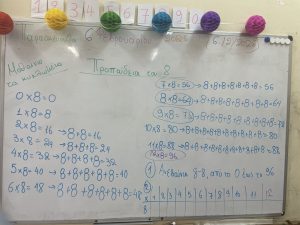 1 2 3 4 5 6 7 8 9 10
Παρασκευή 6 Δεκεμβρίου
6/12/2023
Μαθαίνω
το κουκλόσπιτο
Προπαίδεια του 8
0x8=0
1x8=8
2x8=16 → 8+8=16
3x8=24 → 8+8+8=24
4x8=32 → 8+8+8+8=32
5x8=40 → 8+8+8+8+8=40
6x8=48 → 8+8+8+8+8+8=48
7x8=56 → 8+8+8+8+8+8+8=56
8x8=64 → 8+8+8+8+8+8+8+8=64
9x8=72 → 8+8+8+8+8+8+8+8+8=72
10x8=80 → 8+8+8+8+8+8+8+8+8+8=80
11x8=88 → 8+8+8+8+8+8+8+8+8+8+8=88
12x8=96
1) Ανεβαίνω 8-8, από το 0 έως το 96
2)
x 1 2 3 4 5 6 7 8 9 10 11 12
8